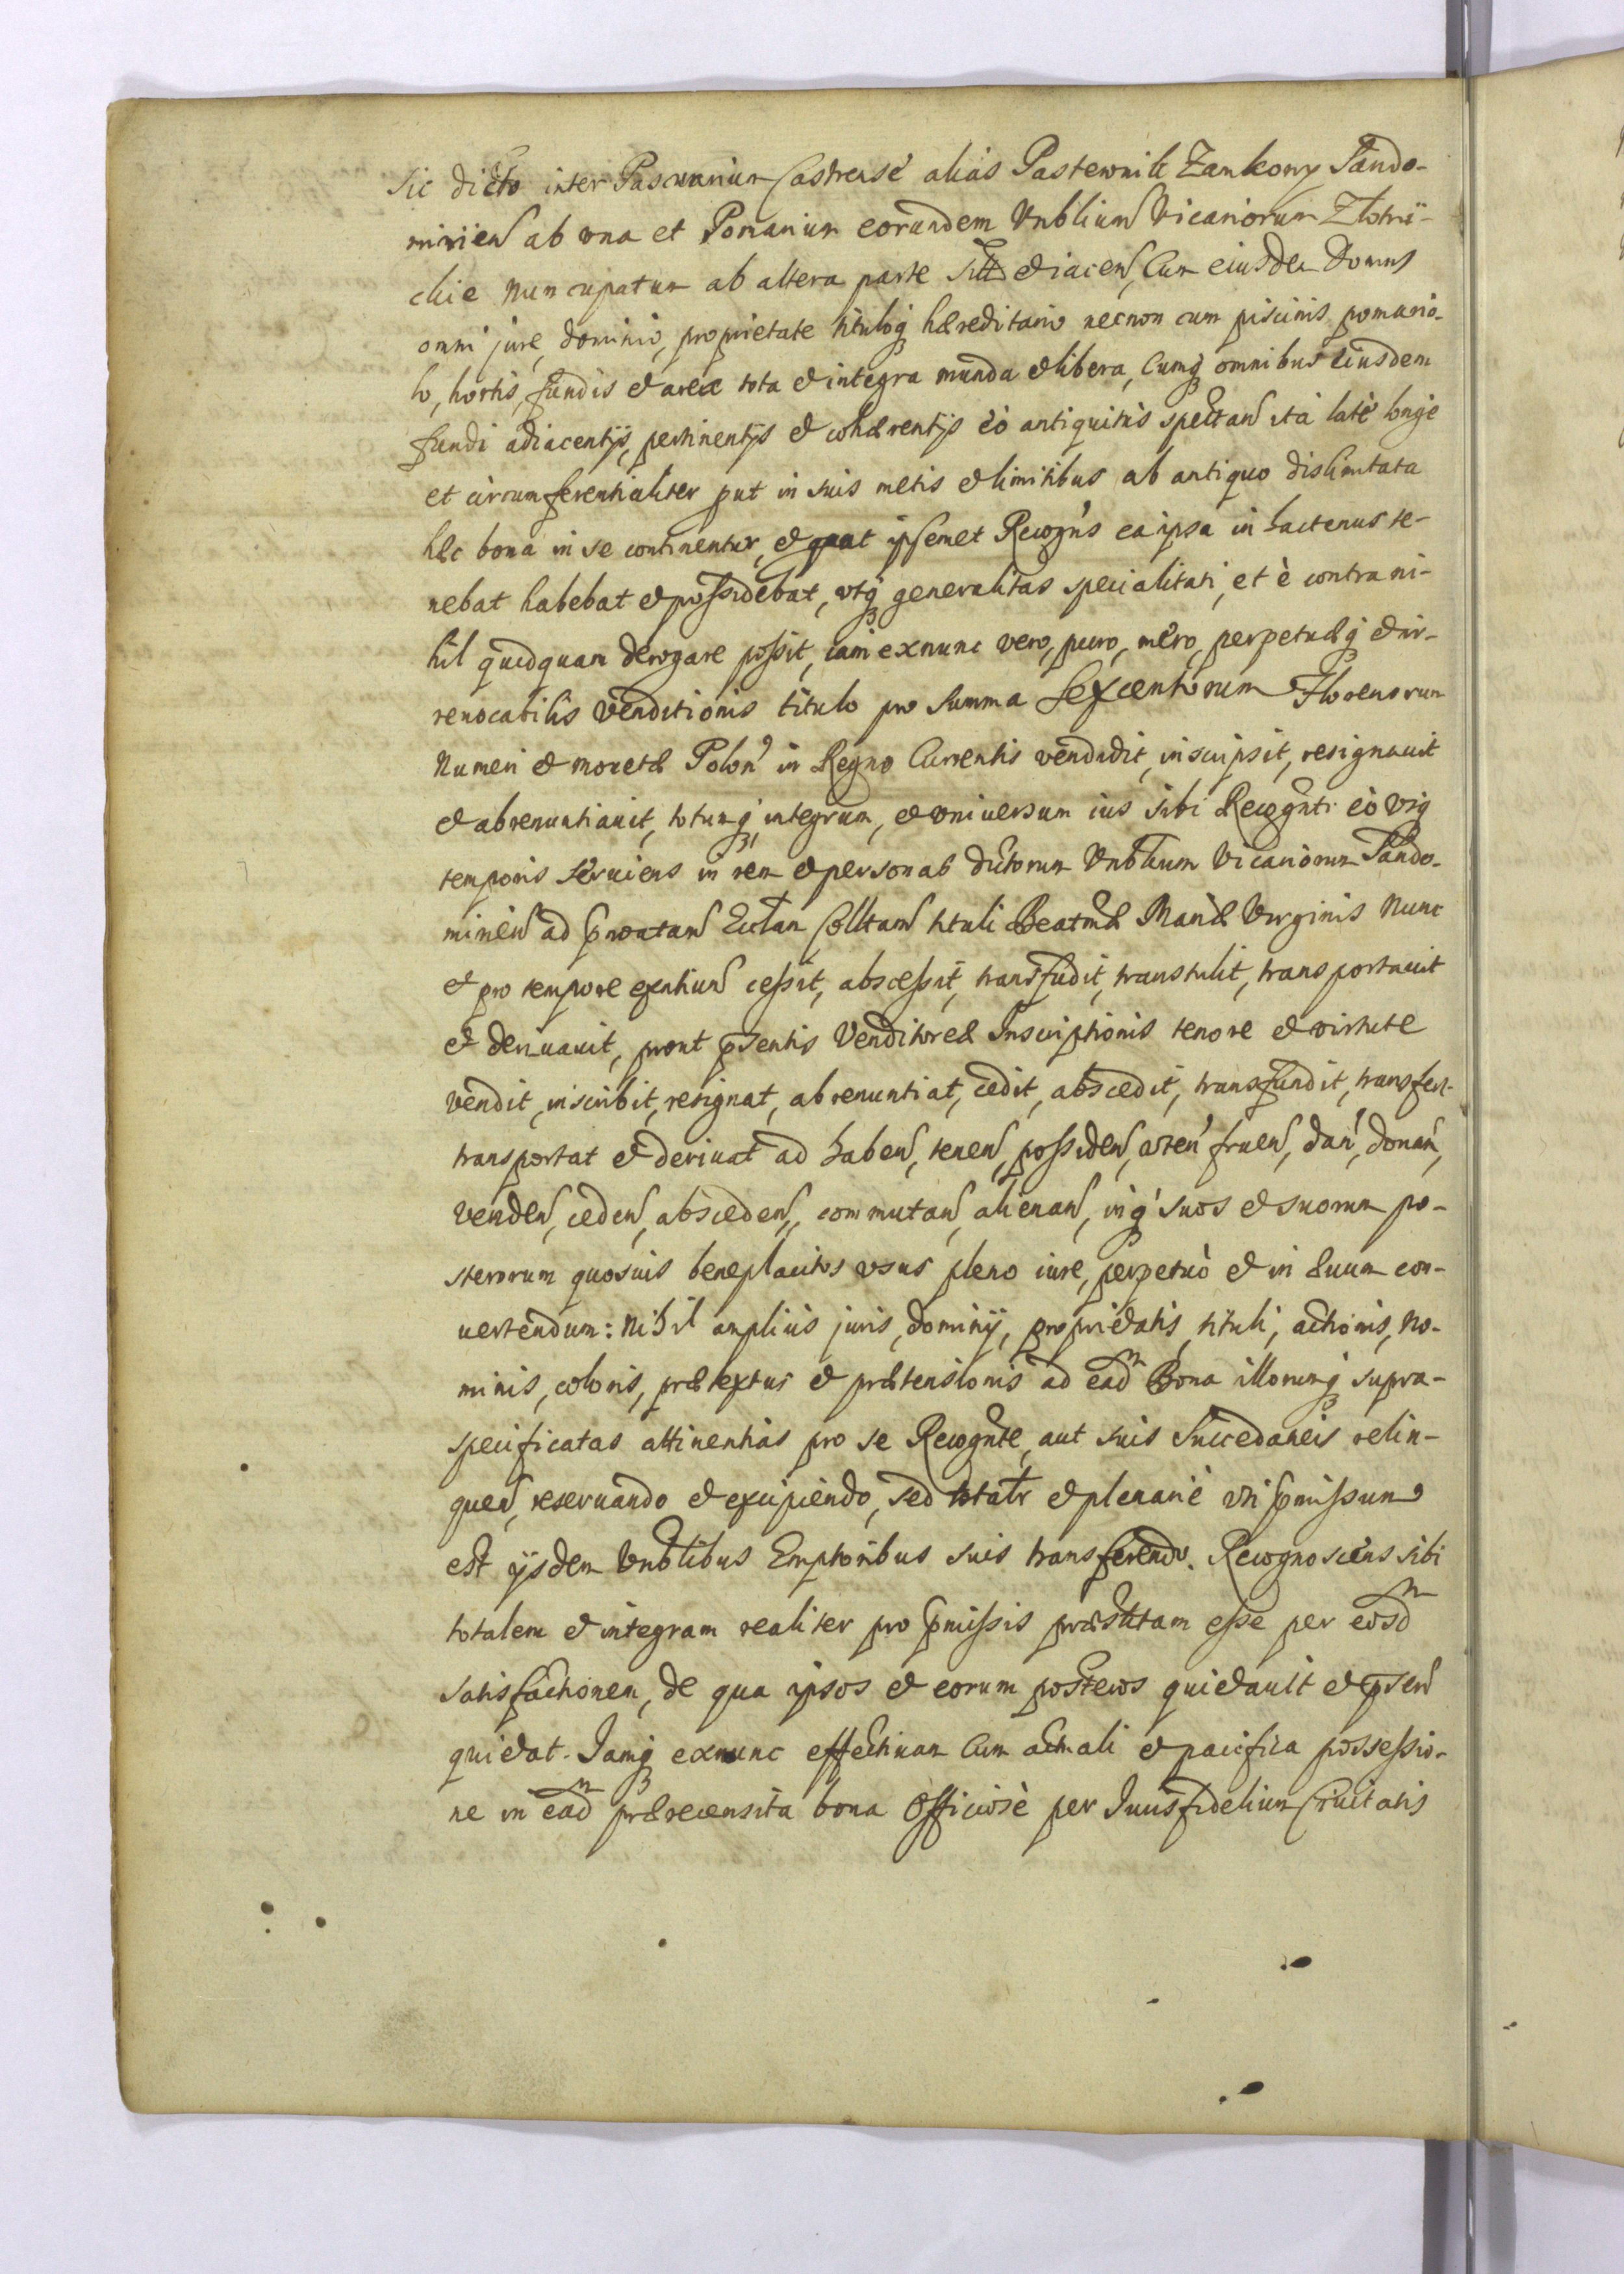 sic dicto inter Pascuarium Castrense alias Pastewnik Zamkowy Sando-
mirien ab vna et Pomarium eorundem Vnblium Vicariorum Zlotni-
chie nuncupatum ab altera parte sitt et iacen, Cum eiusdem Domus
omni jure, dominio, proprietate tituloq hæreditario necnon cum piscinis pomario-
lo, hortis, fundis et area tota et integra munda et libera, Cumq omnibus eiusdem
fundi adiacentijs, pertinentijs et cohærentijs eò antiquitùs spectan ità latè longè
et circumferentialiter put in suis metis et limitibus ab antiquo dislimitata
hæc bona in se continentur, et quat ipsemet Recogns ea ipsa in hactenus te-
nebat habebat et possidebat, vtq generalitas specialitati, et è contra ni-
hil quidquam derogare possit, iam exnunc vero, puro, mero, perpetuæq et ir-
reuocabilis Venditionis titulo pro summa Sexcentorum Florenorum
Numeri et monetæ Polon in Regno Currentis vendidit, inscripsit, resignauit
et abrenuntiauit, totumq integrum, et vniuersum ius sibi Recognti eò vsq
temporis seruiens in rem et personas dictorum Vnblium Vicariorum Sando-
mirien ad pnoatam Ecclam Colltam tituli Beatmæ Mariæ Virginis Nunc
et pro tempore exntium cessit, abscessit, transfudit, transtulit, transportauit
et deriuauit, prout psentis Venditoreæ Inscriptionis tenore et virtute
vendit, inscribit, resignat, abrenuntiat, cedit, abscedit, transfundit, transfert
transportat et deriuat ad haben, tenen, possiden, vten fruen, dan, donan,
venden, ceden, absceden, commutan, alienan, inq suos et suorum po-
sterorum quosuis beneplacitos vsus pleno iure, perpetuò et in æuum con-
uertendum: Nihil amplius juris, dominij, proprietatis, tituli, actionis, no-
minis, coloris, prætextus et prætensionis ad eadm Bona illorumq supra-
specificatas attinentias pro se Recognte, aut suis succedaneis relin-
quen, reseruando et excipiendo, sed totalr et plenariè vti pmissum
est ijsdem Vnblibus Emptoribus suis transferendo. Recognoscens sibi
totalem et integram realiter pro pmissis præstitam esse per eosdm
satisfactionem, de qua ipsos et eorum posteros quietauit et psen
quietat. Iamq exnunc effectiuam Cum actuali et pacifica possessio-
ne in eadm præ recensita bona Officiosè per Iuris fidelium Ciuitatis